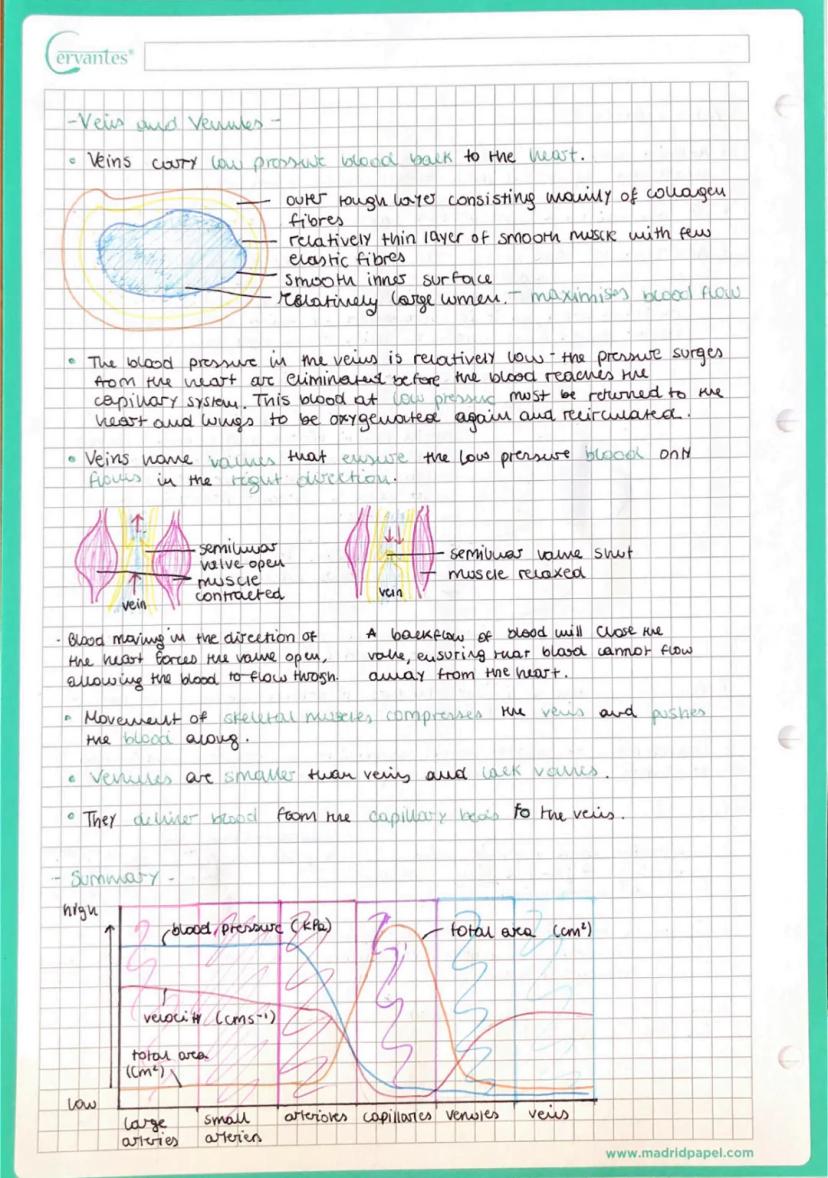 Cervantes®
- Veins and Venules -
• Veins carry low pressure blood back to the heart.
outer tough layer consisting mainly of collagen
fibres
relatively thin layer of smooth muscle with few
elastic fibres
smooth inner surface
relatively large lumen. - maximises blood flow
• The blood pressure in the veins is relatively low - the pressure surges
from the heart are eliminated before the blood reaches the
capillary system. This blood at low pressure must be returned to the
heart and lungs to be oxygenated again and recirculated.
• Veins have valves that ensure the low pressure blood only
flows in the right direction.
semilunar
valve open
muscle
contracted
vein
semilunar valve shut
muscle relaxed
vein
· Blood moving in the direction of
the heart forces the valve open,
allowing the blood to flow through.
A backflow of blood will close the
valve, ensuring that blood cannot flow
away from the heart.
• Movement of skeletal muscles compresses the veins and pushes
the blood along.
• Venules are smaller than veins and lack valves.
• They deliver blood from the capillary beds to the veins.
- Summary -
high
blood pressure (kPa)
total area (cm²)
velocity (cms⁻¹)
total area
(cm²)
low
large
arteries
small
arteries
arterioles
capillaries
venules
veins
www.madridpapel.com